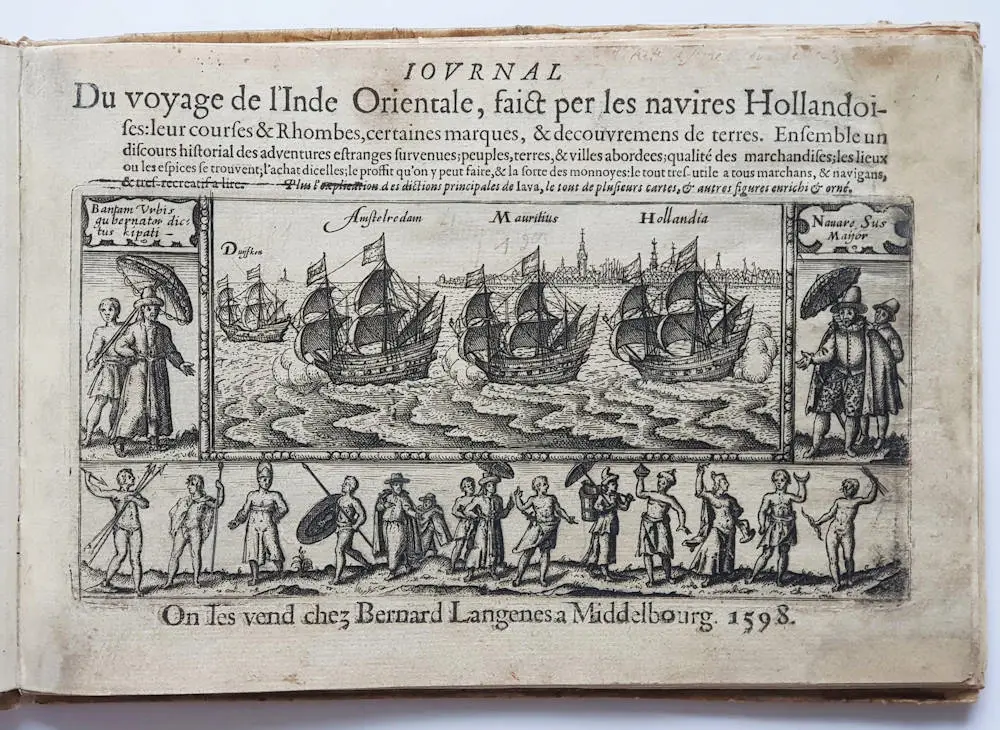 IOVRNAL
Du voyage de l'Inde Orientale, faict per les navires Hollandoi-
ſes: leur courſes & Rhombes, certaines marques, & decouvremens de terres. Enſemble un
diſcours hiſtorial des adventures eſtranges ſurvenues; peuples, terres, & villes abordees; qualité des marchandiſes; les lieux
ou les eſpices ſe trouvent; l'achat dicelles; le proffit qu'on y peut faire, & la ſorte des monnoyes: le tout treſ utile a tous marchans, & navigans,
& treſ-recreatif a lire. Plus l'explication des dictions principales de Iava, le tout de pluſieurs cartes, & autres figures enrichi & orné.
Bantam Vrbis
gubernator dic=
tus kipati
Duijfken
Amſtelredam
Mauritius
Hollandia
Nauarc. Sus
Maijor
On les vend chez Bernard Langenes a Middelbourg. 1598.